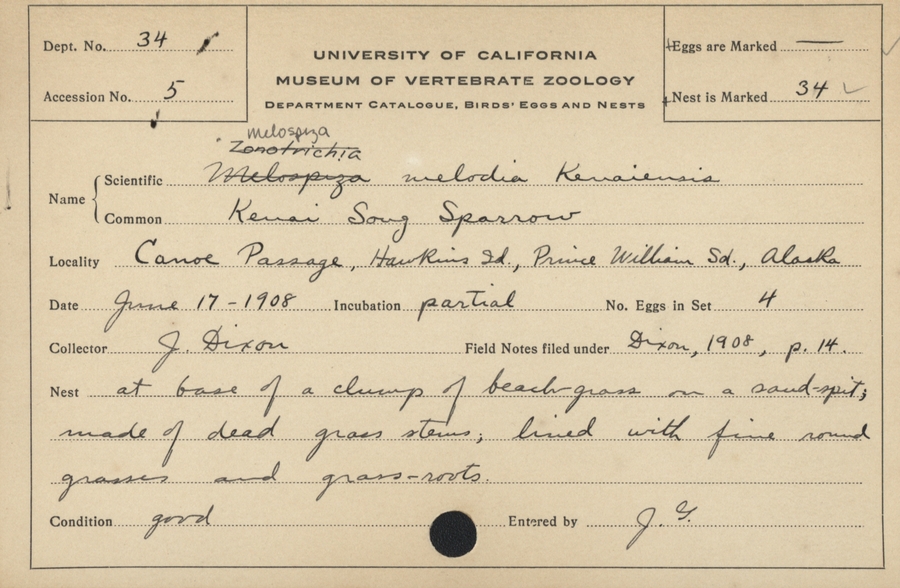 Dept. No. 34
UNIVERSITY OF CALIFORNIA
Eggs are Marked —
MUSEUM OF VERTEBRATE ZOOLOGY
Accession No. 5
DEPARTMENT CATALOGUE, BIRDS' EGGS AND NESTS
Nest is Marked 34 ✓
melospiza
Zonotrichia
Name { Scientific Melospiza melodia Kenaiensis
Common Kenai Song Sparrow
Locality Canoe Passage, Hawkins Id., Prince William Sd., Alaska
Date June 17-1908 Incubation partial No. Eggs in Set 4
Collector J. Dixon Field Notes filed under Dixon, 1908, p. 14.
Nest at base of a clump of beach-grass on a sand-spit;
made of dead grass stems; lined with fine round
grasses and grass-roots.
Condition good Entered by J. G.